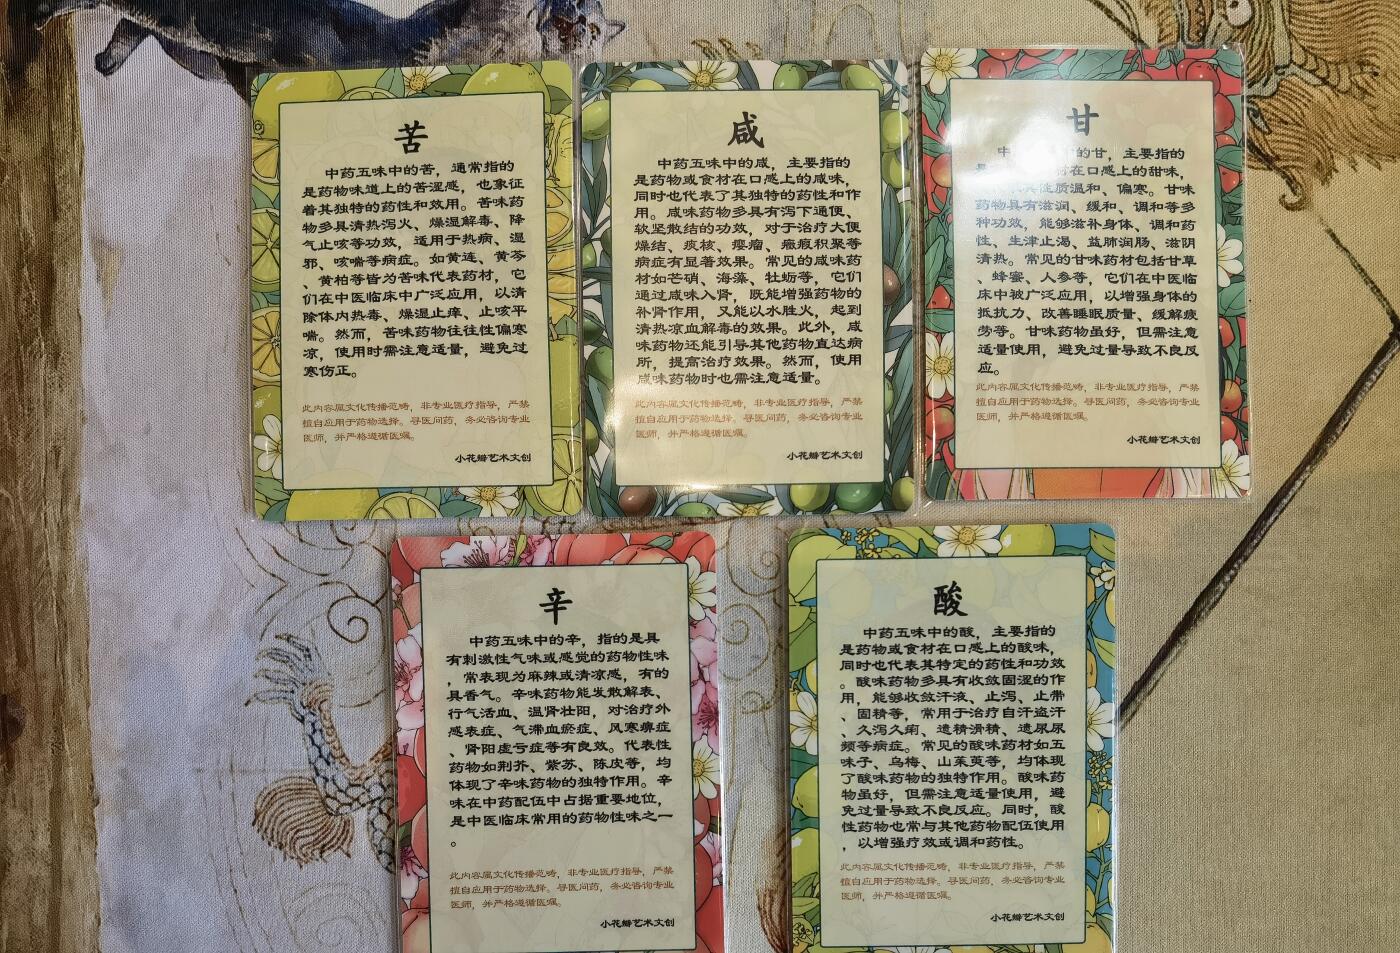 苦
中药五味中的苦，通常指的
是药物味道上的苦涩感，也象征
着其独特的药性和效用。苦味药
物多具清热泻火、燥湿解毒、降
气止咳等功效，适用于热病、湿
邪、咳喘等病症。如黄连、黄芩
、黄柏等皆为苦味代表药材，它
们在中医临床中广泛应用，以清
除体内热毒、燥湿止痒、止咳平
喘。然而，苦味药物往往性偏寒
凉，使用时需注意适量，避免过
寒伤正。
此内容属文化传播范畴，非专业医疗指导，严禁
擅自应用于药物选择。寻医问药，务必咨询专业
医师，并严格遵循医嘱。
小花瓣艺术文创
咸
中药五味中的咸，主要指的
是药物或食材在口感上的咸味，
同时也代表了其独特的药性和作
用。咸味药物多具有泻下通便、
软坚散结的功效，对于治疗大便
燥结、痰核、瘿瘤、癥瘕积聚等
病症有显著效果。常见的咸味药
材如芒硝、海藻、牡蛎等，它们
通过咸味入肾，既能增强药物的
补肾作用，又能以水胜火，起到
清热凉血解毒的效果。此外，咸
味药物还能引导其他药物直达病
所，提高治疗效果。然而，使用
咸味药物时也需注意适量。
此内容属文化传播范畴，非专业医疗指导，严禁
擅自应用于药物选择。寻医问药，务必咨询专业
医师，并严格遵循医嘱。
小花瓣艺术文创
甘
中 的甘，主要指的
是 材在口感上的甜味，
其性质温和、偏寒。甘味
药物具有滋润、缓和、调和等多
种功效，能够滋补身体、调和药
性、生津止渴、益肺润肠、滋阴
清热。常见的甘味药材包括甘草
、蜂蜜、人参等，它们在中医临
床中被广泛应用，以增强身体的
抵抗力、改善睡眠质量、缓解疲
劳等。甘味药物虽好，但需注意
适量使用，避免过量导致不良反
应。
此内容属文化传播范畴，非专业医疗指导，严禁
擅自应用于药物选择。寻医问药，务必咨询专业
医师，并严格遵循医嘱。
小花瓣艺术文创
辛
中药五味中的辛，指的是具
有刺激性气味或感觉的药物性味
，常表现为麻辣或清凉感，有的
具香气。辛味药物能发散解表、
行气活血、温肾壮阳，对治疗外
感表症、气滞血瘀症、风寒痹症
、肾阳虚亏症等有良效。代表性
药物如荆芥、紫苏、陈皮等，均
体现了辛味药物的独特作用。辛
味在中药配伍中占据重要地位，
是中医临床常用的药物性味之一
。
此内容属文化传播范畴，非专业医疗指导，严禁
擅自应用于药物选择。寻医问药，务必咨询专业
医师，并严格遵循医嘱。
小花瓣艺术文创
酸
中药五味中的酸，主要指的
是药物或食材在口感上的酸味，
同时也代表其特定的药性和功效
。酸味药物多具有收敛固涩的作
用，能够收敛汗液、止泻、止带
、固精等，常用于治疗自汗盗汗
、久泻久痢、遗精滑精、遗尿尿
频等病症。常见的酸味药材如五
味子、乌梅、山茱萸等，均体现
了酸味药物的独特作用。酸味药
物虽好，但需注意适量使用，避
免过量导致不良反应。同时，酸
性药物也常与其他药物配伍使用
，以增强疗效或调和药性。
此内容属文化传播范畴，非专业医疗指导，严禁
擅自应用于药物选择。寻医问药，务必咨询专业
医师，并严格遵循医嘱。
小花瓣艺术文创